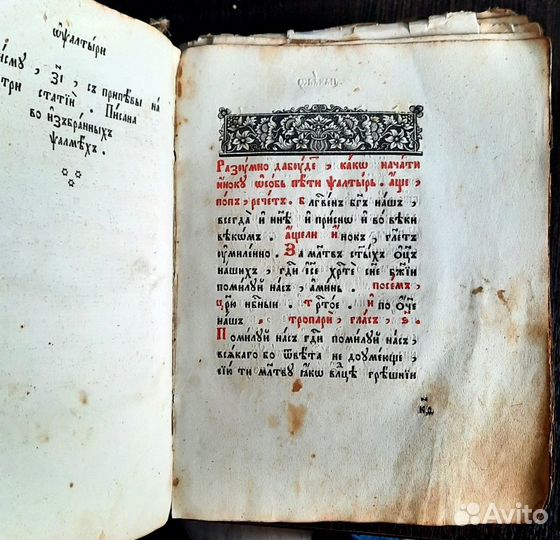 ѡ҆ ѱалтыри
і́сму , з҃і , съ припѣвы на
три статїи̑ . Писана
во и҆збранныхъ
ѱалмѣхъ .
Разꙋмно да бꙋдетъ , какѡ начати
и҆нокꙋ ѡ҆собь пѣти ѱалтырь . а҆ще ,
попъ , речетъ . Блг҃венъ бг҃ъ нашъ ,
всегда̀ и҆ нн҃ѣ и҆ присно и҆ во вѣки
вѣкомъ . а҆ще ли и҆нокъ , гл҃етъ
ᲂумиленно . За мл҃твъ ст҃ыхъ ѻ҆ц҃ъ
нашихъ , гдⷭ҇и і҆се хрⷭ҇те сн҃е бж҃їи
помилуй насъ , а҆минь . посемъ ,
цр҃ю нбⷭ҇ныи . трⷭ҇тое . и҆ по ѻ҆ч҃е
нашъ , тропари̑ , гласъ , ѕ҃ .
Помилуй насъ гдⷭ҇и помилуй насъ ,
всѧкаго во ѿвѣта не доумѣюще ,
сїи ти мл҃твꙋ ꙗ҆кѡ влⷣцѣ грѣшнїи
к҃д
Avito